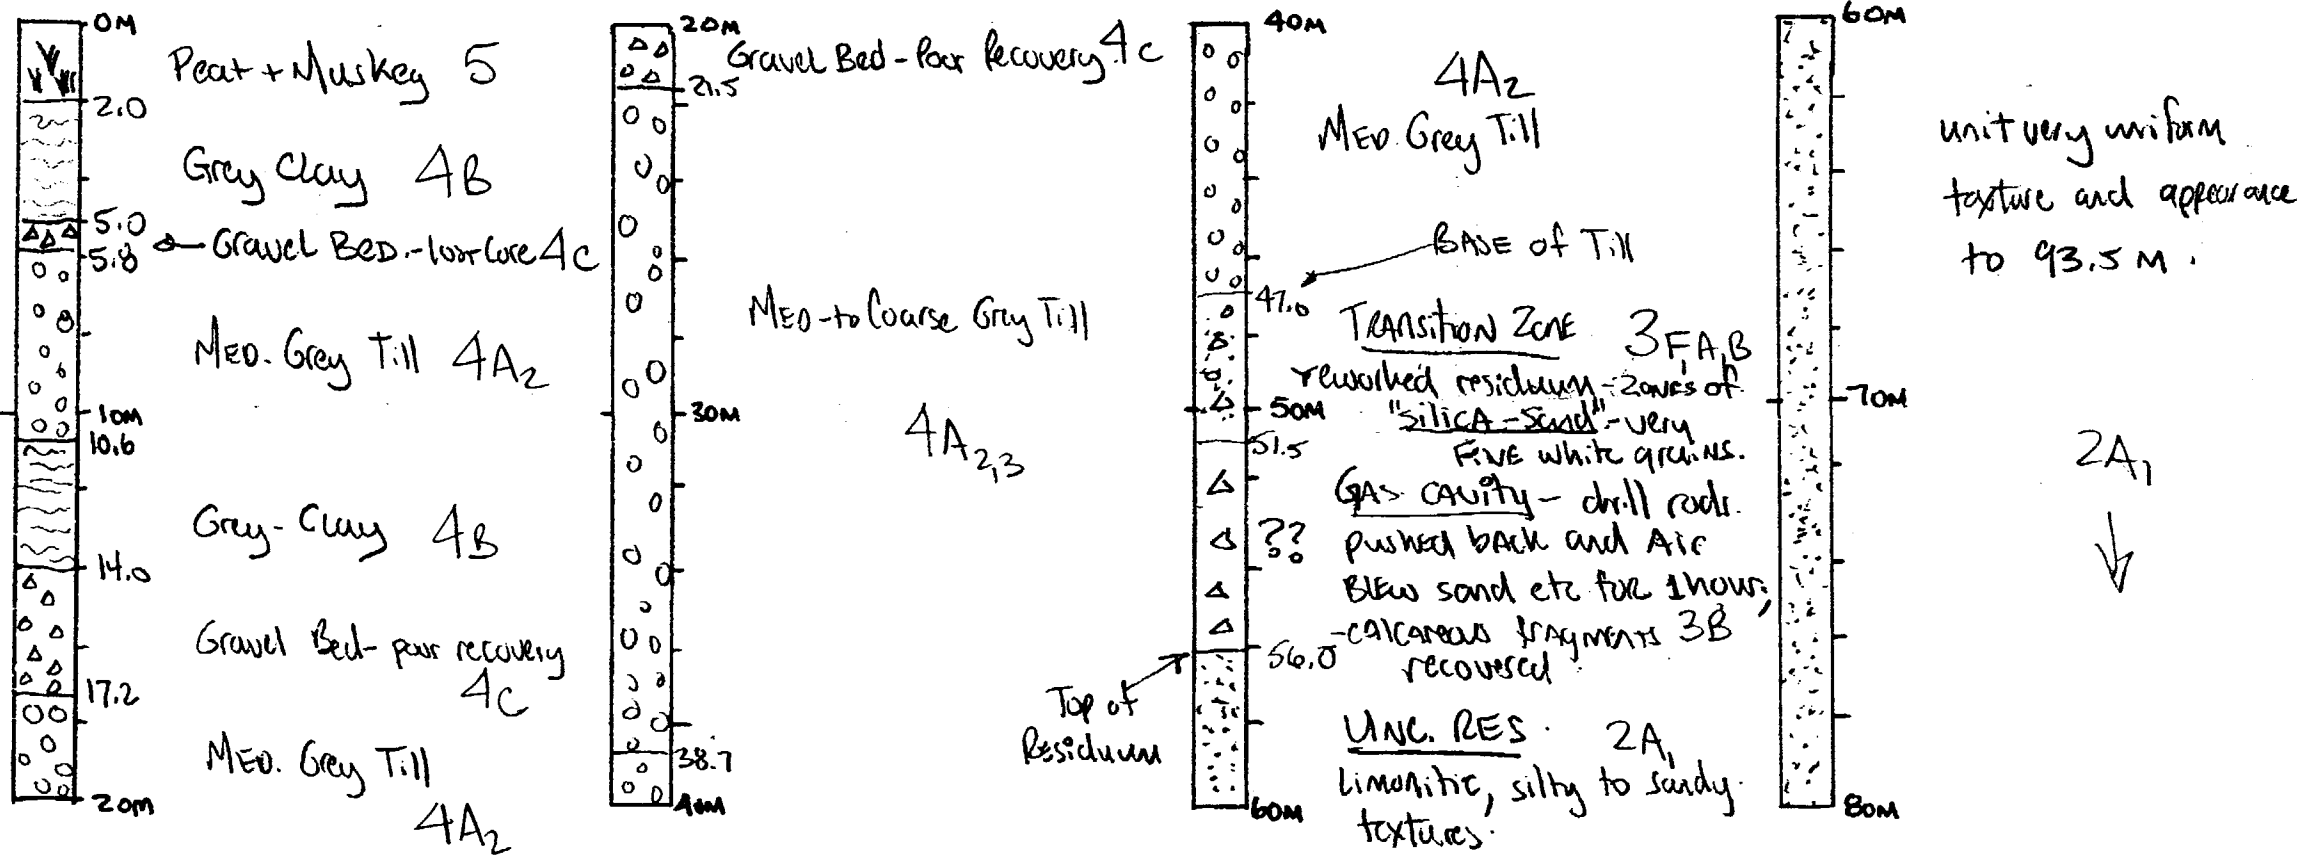 0M
Peat + Muskeg 5
2.0
Grey Clay 4B
5.0
Gravel BED. - low Core 4C
5.8
MED. Grey Till 4A2
10M
10.6
Grey - Clay 4B
14.0
Gravel Bed - poor recovery
4C
17.2
MED. Grey Till
4A2
20M
20M
Gravel Bed - Poor Recovery 4C
21.5
MED - to Coarse Grey Till
30M
4A2,3
38.7
40M
40M
4A2
MED. Grey Till
BASE of Till
47.0
TRANSITION ZONE 3F,A,B
reworked residuum - zones of
50M
"SILICA - Sand" - very
FINE white grains.
51.5
GAS CAVITY - drill rods
?? pushed back and Air
Blew sand etc for 1 hour;
- calcareous fragments 3B
recovered
56.0
Top of
Residuum
UNC. RES. 2A1
Limonitic, silty to sandy
textures.
60M
60M
unit very uniform
texture and appearance
to 93.5 M.
70M
2A1
80M